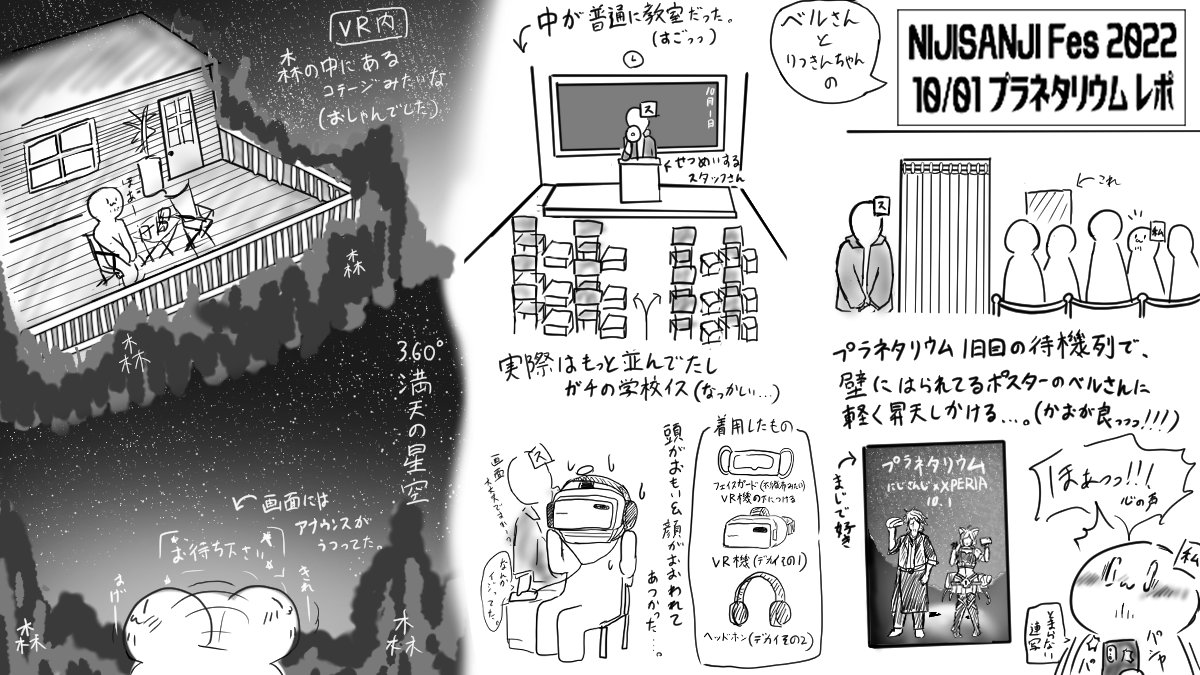 NIJISANJI Fes 2022
10/01 プラネタリウム レポ
ベルさん
と
りっさんちゃん
の
ス
これ
私
プラネタリウム 1日目の待機列で、
壁にはられてるポスターのベルさんに
軽く昇天しかける…。(かおが良っっっ!!!)
まじで好き
プラネタリウム
にじさんじ×XPERIA
10.1
ほぁっっ!!!
心の声
私
パシャ
パ
連写
中が普通に教室だった。
(すごっっ)
10月1日
ス
せつめいする
スタッフさん
実際はもっと並んでたし
ガチの学校イス(なっかしい…)
頭がおもい&顔がおおわれて
あつかった…。
ス
なんか
イジってた。
着用したもの
フェイスガード(不織布みたい)
VR機の下につける
VR機(デカイその1)
ヘッドホン(デカイその2)
VR内
森の中にある
コテージみたいな
(おしゃんでした)
まぉ~
森
森
360°
満天の星空
画面には
アナウンスが
うつってた。
お待ち下さい
おげ
きれー
森
森